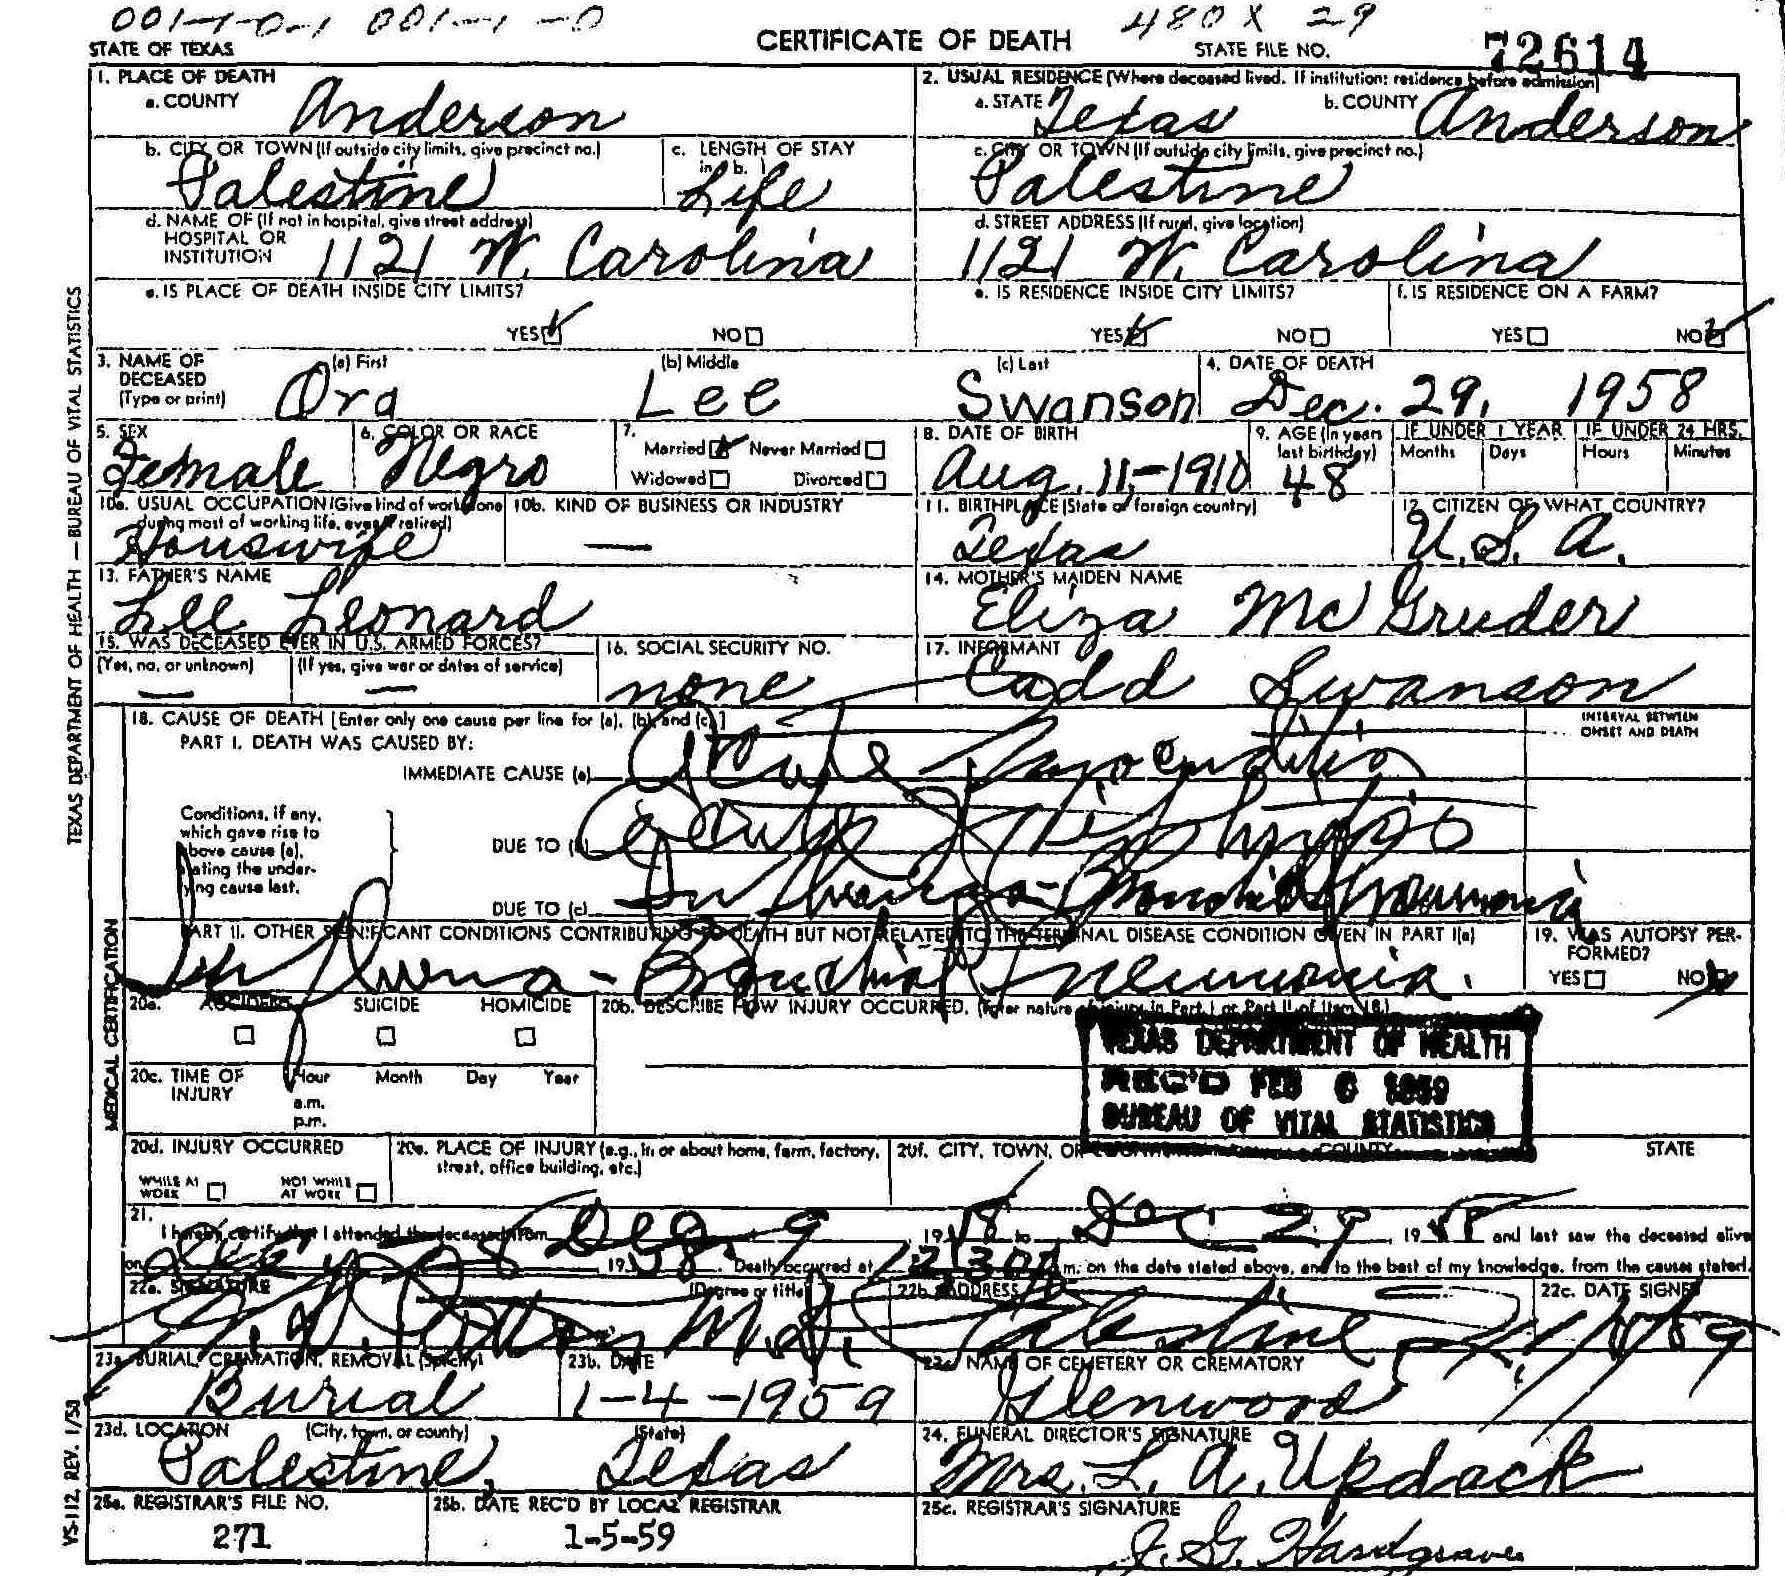 001-1-0-1 001-1-0 480X 29
STATE OF TEXAS CERTIFICATE OF DEATH STATE FILE NO. 72614
1. PLACE OF DEATH
a. COUNTY Anderson
2. USUAL RESIDENCE (Where deceased lived. If institution: residence before admission)
a. STATE Texas b. COUNTY Anderson
b. CITY OR TOWN (If outside city limits, give precinct no.) Palestine
c. LENGTH OF STAY in b. Life
c. CITY OR TOWN (If outside city limits, give precinct no.) Palestine
d. NAME OF (If not in hospital, give street address)
HOSPITAL OR
INSTITUTION 1121 W. Carolina
d. STREET ADDRESS (If rural, give location) 1121 W. Carolina
e. IS PLACE OF DEATH INSIDE CITY LIMITS?
YES NO
e. IS RESIDENCE INSIDE CITY LIMITS?
YES NO
f. IS RESIDENCE ON A FARM?
YES NO
3. NAME OF DECEASED (Type or print) (a) First Ora (b) Middle Lee (c) Last Swanson
4. DATE OF DEATH Dec. 29, 1958
5. SEX Female
6. COLOR OR RACE Negro
7. Married Never Married
Widowed Divorced
8. DATE OF BIRTH Aug. 11,-1910
9. AGE (In years last birthday) 48
IF UNDER 1 YEAR Months Days
IF UNDER 24 HRS. Hours Minutes
10a. USUAL OCCUPATION (Give kind of work done during most of working life, even if retired) Houswife
10b. KIND OF BUSINESS OR INDUSTRY —
11. BIRTHPLACE (State or foreign country) Texas
12. CITIZEN OF WHAT COUNTRY? U.S.A.
13. FATHER'S NAME Lee Leonard
14. MOTHER'S MAIDEN NAME Eliza McGruder
15. WAS DECEASED EVER IN U.S. ARMED FORCES?
(Yes, no, or unknown) — (If yes, give war or dates of service) —
16. SOCIAL SECURITY NO. none
17. INFORMANT Cadd Swanson
18. CAUSE OF DEATH [Enter only one cause per line for (a), (b), and (c).]
INTERVAL BETWEEN ONSET AND DEATH
PART I. DEATH WAS CAUSED BY:
IMMEDIATE CAUSE (a) Acute Myocarditis
Conditions, if any, which gave rise to above cause (a), stating the underlying cause last.
DUE TO (b) Acute
DUE TO (c) Influenza-Bronchial Pneumonia
PART II. OTHER SIGNIFICANT CONDITIONS CONTRIBUTING TO DEATH BUT NOT RELATED TO THE TERMINAL DISEASE CONDITION GIVEN IN PART I(a)
Influenza-Bronchial Pneumonia.
19. WAS AUTOPSY PERFORMED?
YES NO
20a. ACCIDENT SUICIDE HOMICIDE
20b. DESCRIBE HOW INJURY OCCURRED. (Enter nature of injury in Part I or Part II of item 18.)
TEXAS DEPARTMENT OF HEALTH
REC'D FEB 6 1959
BUREAU OF VITAL STATISTICS
20c. TIME OF INJURY Hour Month Day Year
a.m.
p.m.
20d. INJURY OCCURRED
WHILE AT WORK NOT WHILE AT WORK
20e. PLACE OF INJURY (e.g., in or about home, farm, factory, street, office building, etc.)
20f. CITY, TOWN, OR COUNTY STATE
21. I hereby certify that I attended the deceased from Dec 9 1958 to Dec 29 1958 and last saw the deceased alive
on Dec 28 1958. Death occurred at 12:30 m. on the date stated above, and to the best of my knowledge, from the causes stated.
22a. SIGNATURE (Degree or title) M.D.
22b. ADDRESS Palestine
22c. DATE SIGNED
23a. BURIAL, CREMATION, REMOVAL (Specify) Burial
23b. DATE 1-4-1959
23c. NAME OF CEMETERY OR CREMATORY Glenwood
23d. LOCATION (City, town, or county) (State) Palestine, Texas
24. FUNERAL DIRECTOR'S SIGNATURE Mrs. L. A. Updack
25a. REGISTRAR'S FILE NO. 271
25b. DATE REC'D BY LOCAL REGISTRAR 1-5-59
25c. REGISTRAR'S SIGNATURE J. G. Hardgraves
TEXAS DEPARTMENT OF HEALTH — BUREAU OF VITAL STATISTICS
MEDICAL CERTIFICATION
VS-112, REV. 1/58